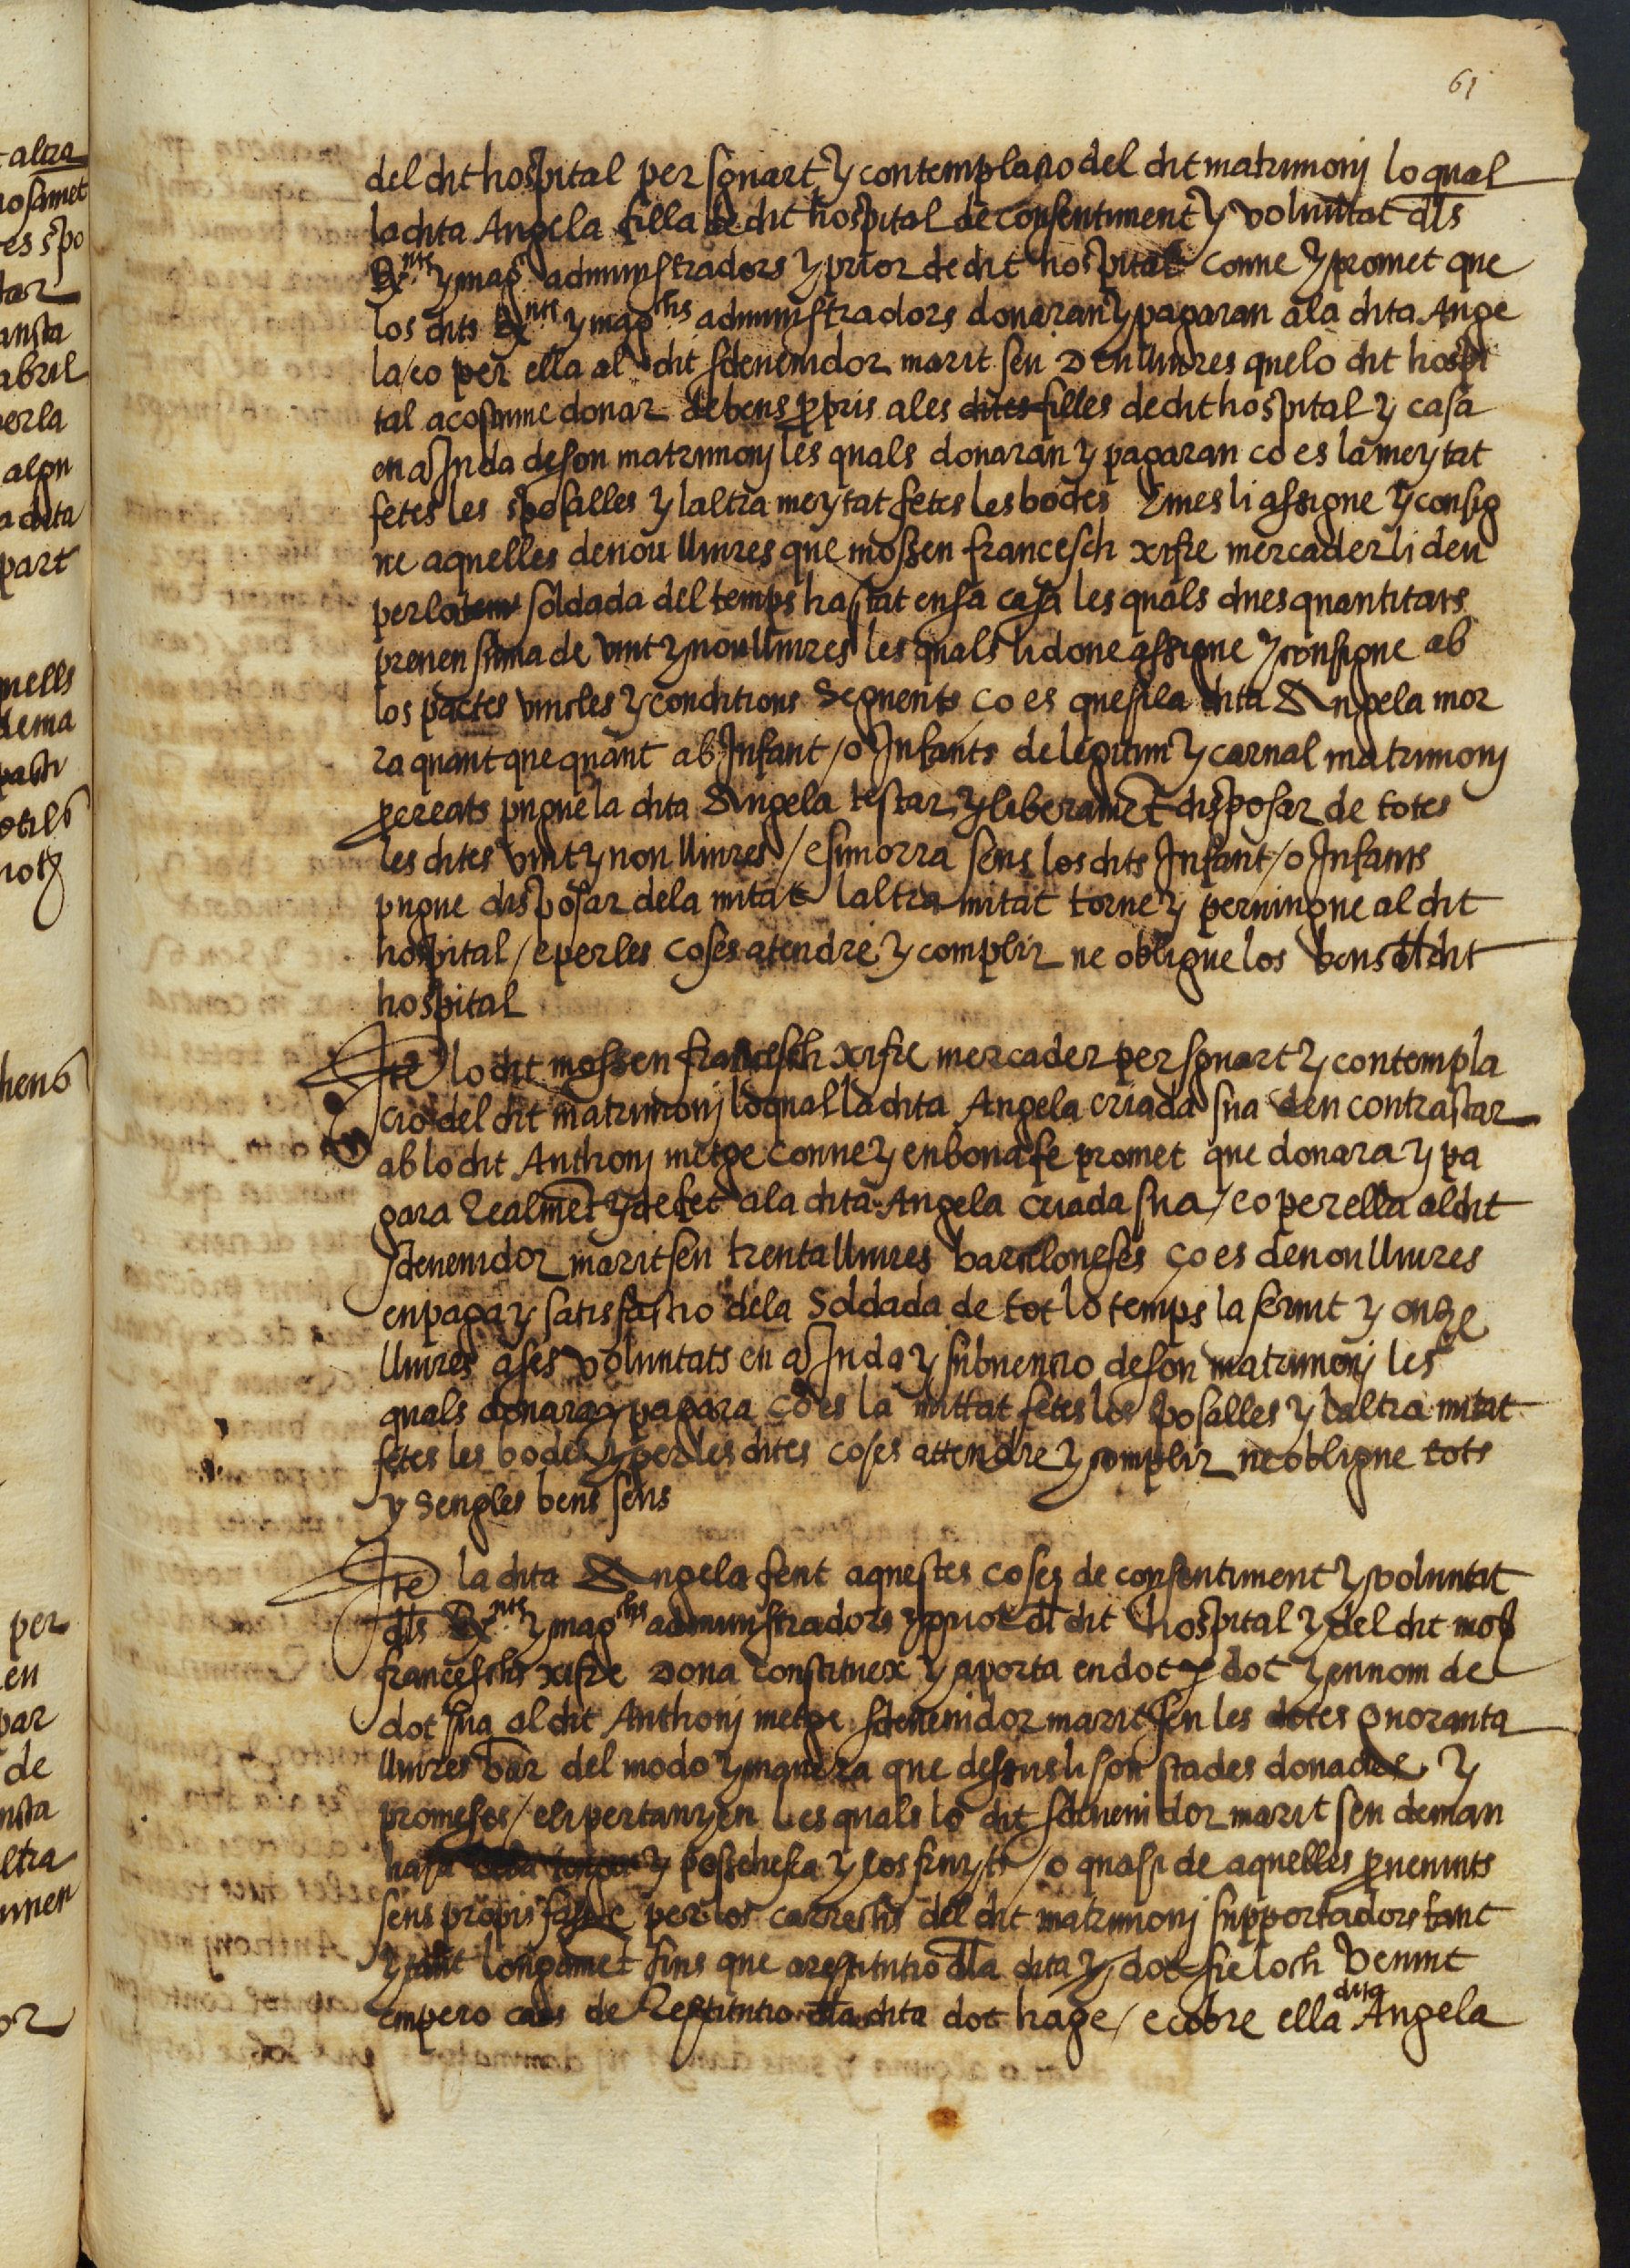 61
del dit hospital per sguart y contemplatio del dit matrimonj lo qual
la dita Angela filla de dit hospital de consentiment y voluntat dls
Rx.nts y mag.chs administradors y prior de dit hospital conve y promet que
los dits Rx.nts y mag.chs administradors donaran y pagaran ala dita Ange
la / eo per ella al dit sdevenidor marit seu deu lliures quelo dit hospi
tal acostume donar de bens ppris ales dites filles de dit hospital y casa
en aJuda de son matrimonj les quals donaran y pagaran ço es la meytat
fetes les sposalles y laltra meytat fetes les bodes E mes li assigne y consig
ne aquelles denou lliures que mossen francesch xifre mercader li deu
per la soldada del temps ha stat en sa casa les quals dues quantitats
prenen suma de vint y nou lliures les quals li done assigne y consigne ab
los pactes vincles y conditions seguents ço es que si la dita Angela mor
ra quant que quant ab Infant / o Infants de legitim y carnal matrimonj
pcreats pugue la dita Angela testar y liberamēt disposar de totes
les dites vint y nou lliures / e si morra sens los dits Infant / o Infants
pugue disposar dela mitat laltra mitat torne y pervingue al dit
hospital / e per les coses atendre y complir ne obligue los bens dl dit
hospital
Itē lo dit mossen francesch xifre mercader per sguart y contempla
cio del dit matrimonj lo qual la dita Angela criada sua den contractar
ab lo dit Anthonj metge conve y en bona fe promet que donara y pa
gara Realmēt y de fet ala dita Angela criada sua / eo per ella al dit
sdevenidor marit seu trenta lliures barceloneses ço es denou lliures
en paga y satisfactio dela soldada de tot lo temps la servit y onze
lliures a ses voluntats en aJuda y subventio de son matrimonj les
quals donara y pagara ço es la mittat fetes les sposalles y laltra mitat
fetes les bodes y per les dites coses attendre y complir ne obligue tots
y sengles bens seus
Itē la dita Angela fent aquestes coses de consentiment y voluntat
dls Rx.nts y mag.chs administradors y prior dl dit hospital y del dit moss
francesch xifre Dona constituex y aporta en dot y dot y en nom de
dot sua al dit Anthonj metge sdevenidor marit seu les dites quoranta
lliures bar del modo y manera que dessus li son stades donades y
promeses / e li pertanyen Les quals lo dit sdevenidor marit seu deman
haja y postehesca y los fruyts / o quasi de aquelles pvenints
seus propis faça per los carrechs del dit matrimonj supportadors tant
y tant longamēt fins que a restitutio dla dita y dot sie loch Venint
empero cas de Restitutio dla dita dot hage / e cobre ella dita Angela